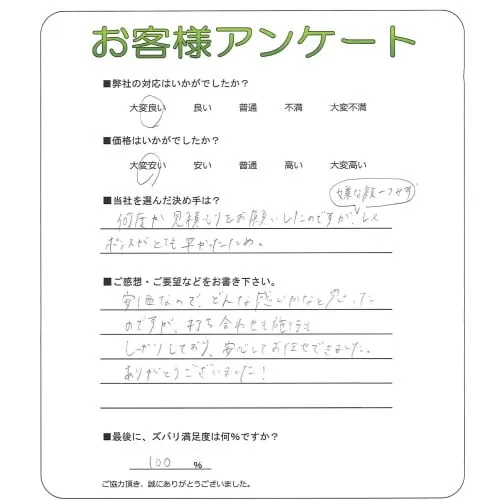 お客様アンケート
■弊社の対応はいかがでしたか？
大変良い 良い 普通 不満 大変不満
■価格はいかがでしたか？
大変安い 安い 普通 高い 大変高い
■当社を選んだ決め手は？
嫌な顔一つせず
何度か見積もりをお願いしたのですが、レス
ポンスがとても早かったため。
■ご感想・ご要望などをお書き下さい。
安価なので、どんな感じかなと思った
のですが、打ち合わせも施行も
しっかりしており、安心してお任せできました。
ありがとうございました！
■最後に、ズバリ満足度は何％ですか？
100 ％
ご協力頂き、誠にありがとうございました。